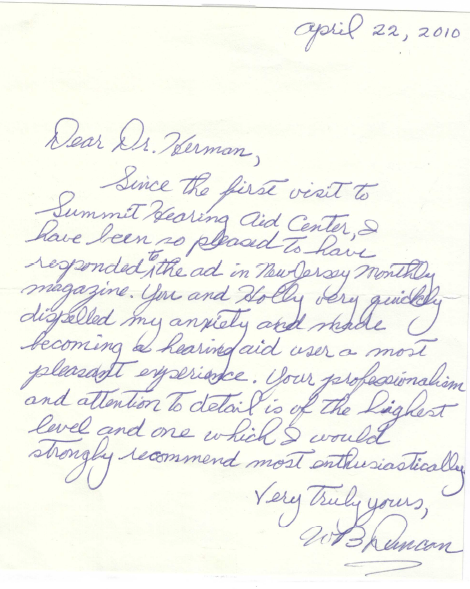 April 22, 2010
Dear Dr. Herman,
Since the first visit to
Summit Hearing Aid Center, I
have been so pleased to have
responded to the ad in New Jersey Monthly
magazine. You and Holly very quickly
dispelled my anxiety and made
becoming a hearing aid user a most
pleasant experience. Your professionalism
and attention to detail is of the highest
level and one which I would
strongly recommend most enthusiastically
Very Truly yours,
WB Duncan